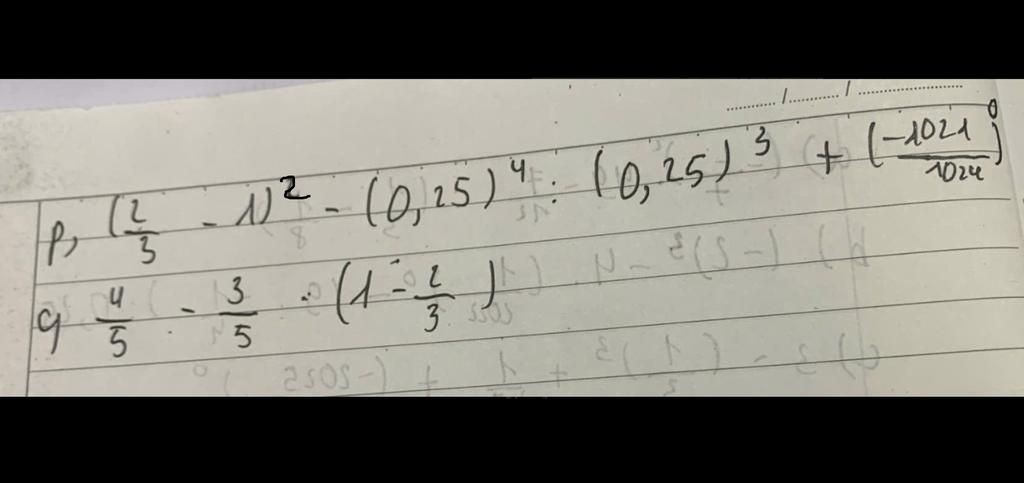 p, (2/3 - 1)² - (0,25)⁴ : (0,25)³ + (-1021/1024)⁰
q 4/5 - 3/5 · (1 - 2/3)